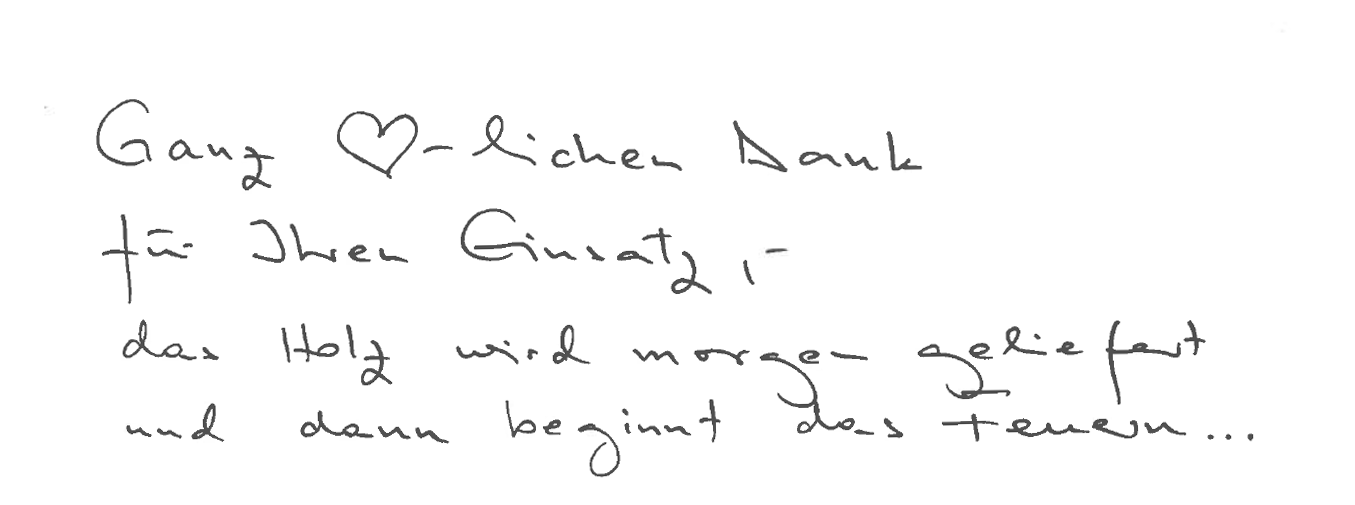 Ganz ♡-lichen Dank
für Ihren Einsatz,-
das Holz wird morgen geliefert
und dann beginnt das Feuern...